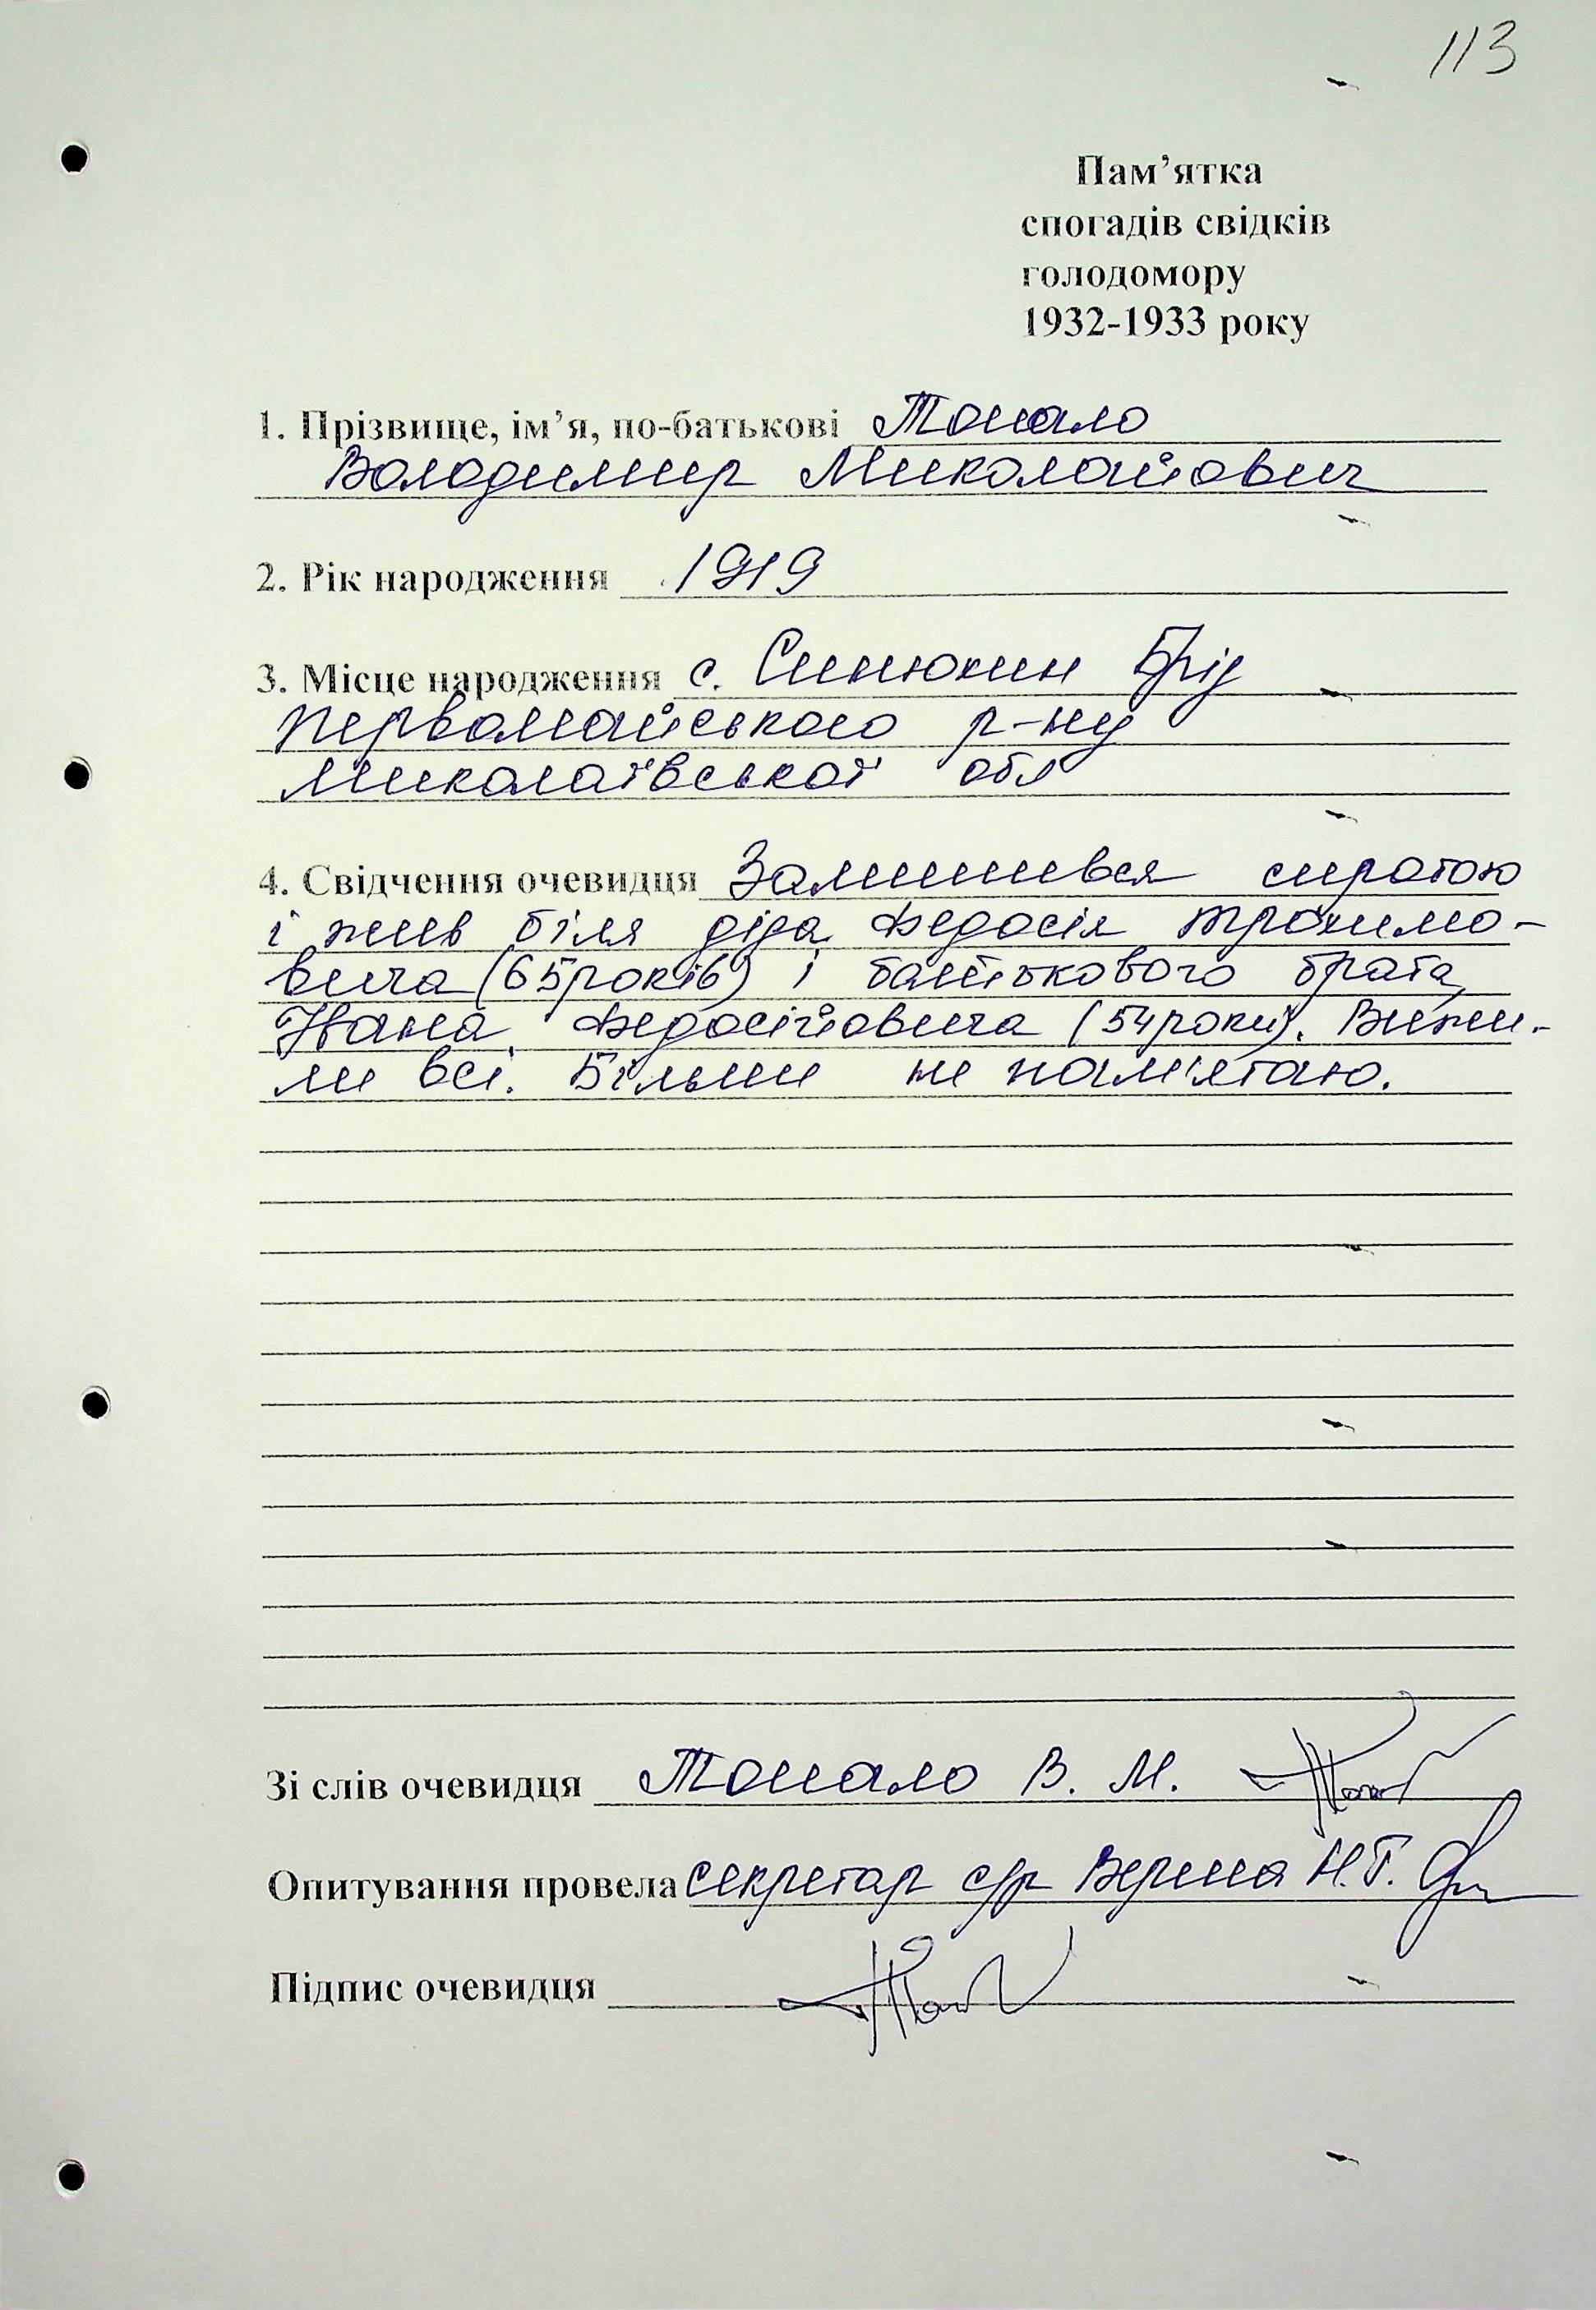 113
Пам’ятка
спогадів свідків
голодомору
1932-1933 року
1. Прізвище, ім’я, по-батькові
Володимир Миколайович
2. Рік народження 1919
3. Місце народження с. Синюхин Брід
Первомайського р-ну
Миколаївської обл
4. Свідчення очевидця Залишився сиротою
і жив біля діда Федосія Трохимо-
вича (65 років) і батькового брата
Івана Федосійовича (54 роки). Вижи-
ли всі. Більше не пам'ятаю.
Зі слів очевидця В. М.
Опитування провела секретар с/р Н.Г.
Підпис очевидця